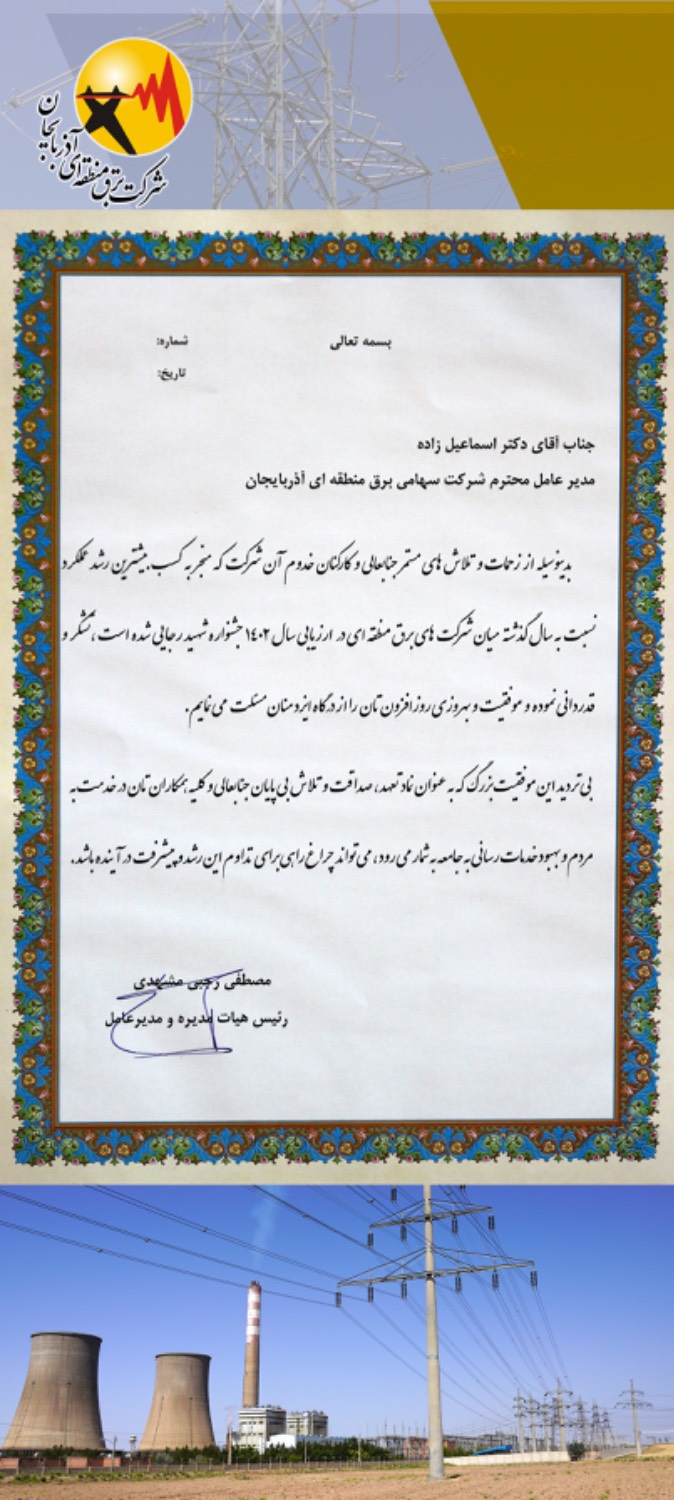 شرکت برق منطقه‌ای آذربایجان
بسمه تعالی
شماره:
تاریخ:
جناب آقای دکتر اسماعیل زاده
مدیر عامل محترم شرکت سهامی برق منطقه ای آذربایجان
بدینوسیله از زحمات و تلاش های مستمر جنابعالی و کارکنان خدوم آن شرکت که منجر به کسب بیشترین رشد عملکرد
نسبت به سال گذشته میان شرکت های برق منطقه ای در ارزیابی سال ۱۴۰۲ جشنواره شهید رجایی شده است، تشکر و
قدردانی نموده و موفقیت و بهروزی روز افزون تان را از درگاه ایزد منان مسئلت می نمایم.
بی تردید این موفقیت بزرگ که به عنوان نماد تعهد، صداقت و تلاش بی پایان جنابعالی و کلیه همکاران تان در خدمت به
مردم و بهبود خدمات رسانی به جامعه به شمار می رود، می تواند چراغ راهی برای تداوم این رشد و پیشرفت در آینده باشد.
مصطفی رجبی مشهدی
رئیس هیات مدیره و مدیرعامل